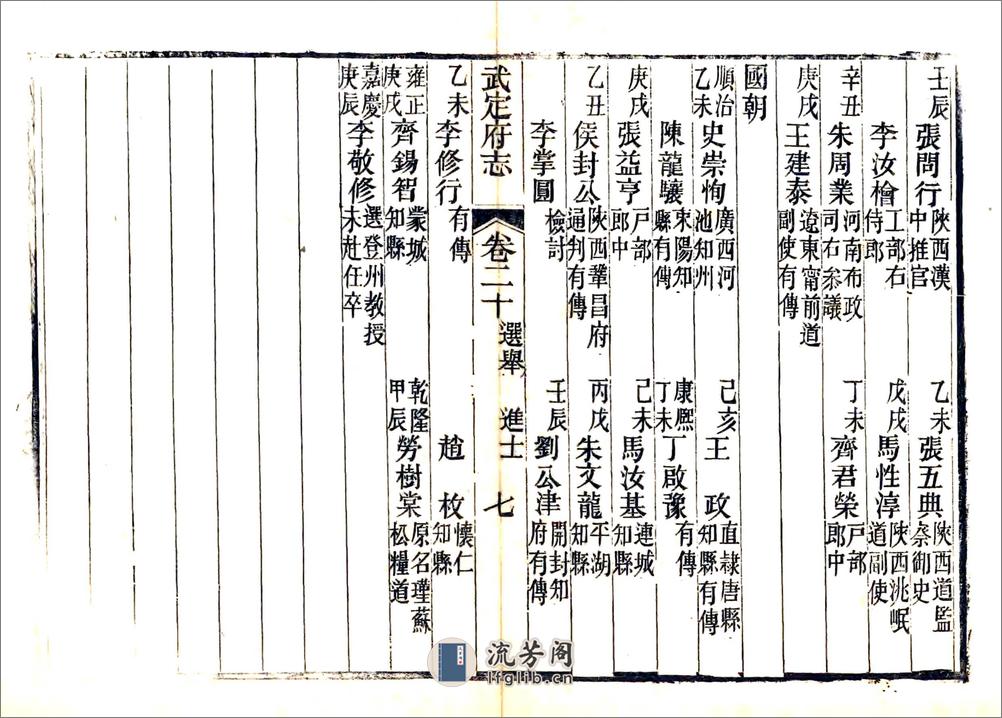 壬辰張問行陝西漢中推官 乙未張五典陝西道監察御史
李汝檜工部右侍郎 戊戌馬性淳陝西洮岷道副使
辛丑朱周業河南布政司右參議 丁未齊君榮戶部郎中
庚戌王建泰遼東甯前道副使有傳
國朝
順治乙未史崇恂廣西河池知州 己亥王政直隸唐縣知縣有傳
陳龍驤東陽知縣有傳 康熙丁未丁啟豫有傳
庚戌張益亨戶部郎中 己未馬汝基連城知縣
乙丑侯封公陝西鞏昌府通判有傳 丙戌朱文龍平湖知縣
李掌圓檢討 壬辰劉公津開封知府有傳
武定府志 卷二十 選舉 進士 七
乙未李修行有傳 趙枚懷仁知縣
雍正庚戌齊錫智蒙城知縣 乾隆甲辰勞樹棠原名瑾蘇松糧道
嘉慶庚辰李敬修選登州教授未赴任卒
流芳阁
lfglib.cn